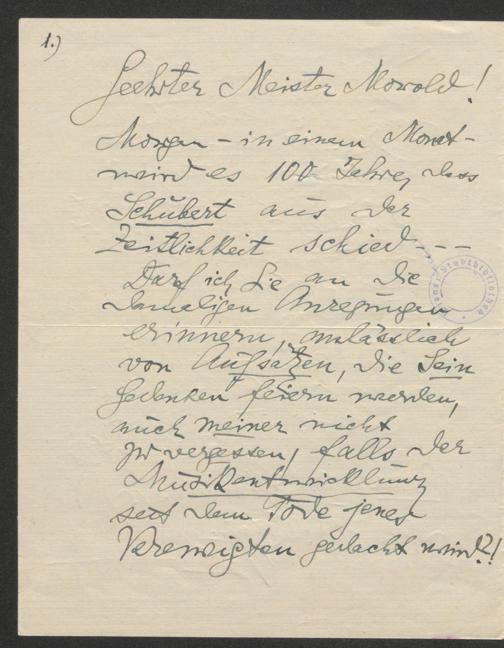 1.)
Geehrter Meister Morold!
Morgen – in einem Monat –
wird es 100 Jahre, dass
Schubert aus der
Zeitlichkeit schied – – –
Darf ich Sie an die
damaligen Anregungen
erinnern, anlässlich
von Aufsätzen, die Sein
Gedenken feiern werden,
auch meiner nicht
zu vergessen, falls der
Musikentwicklung
seit dem Tode jenes
Verewigten gedacht wird?!
Stadtbibliothek